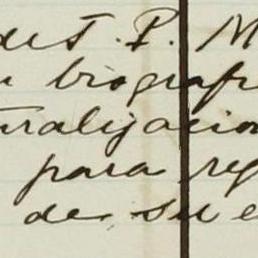 de T. P. M
biograf
ralizacion
para reg
de su e